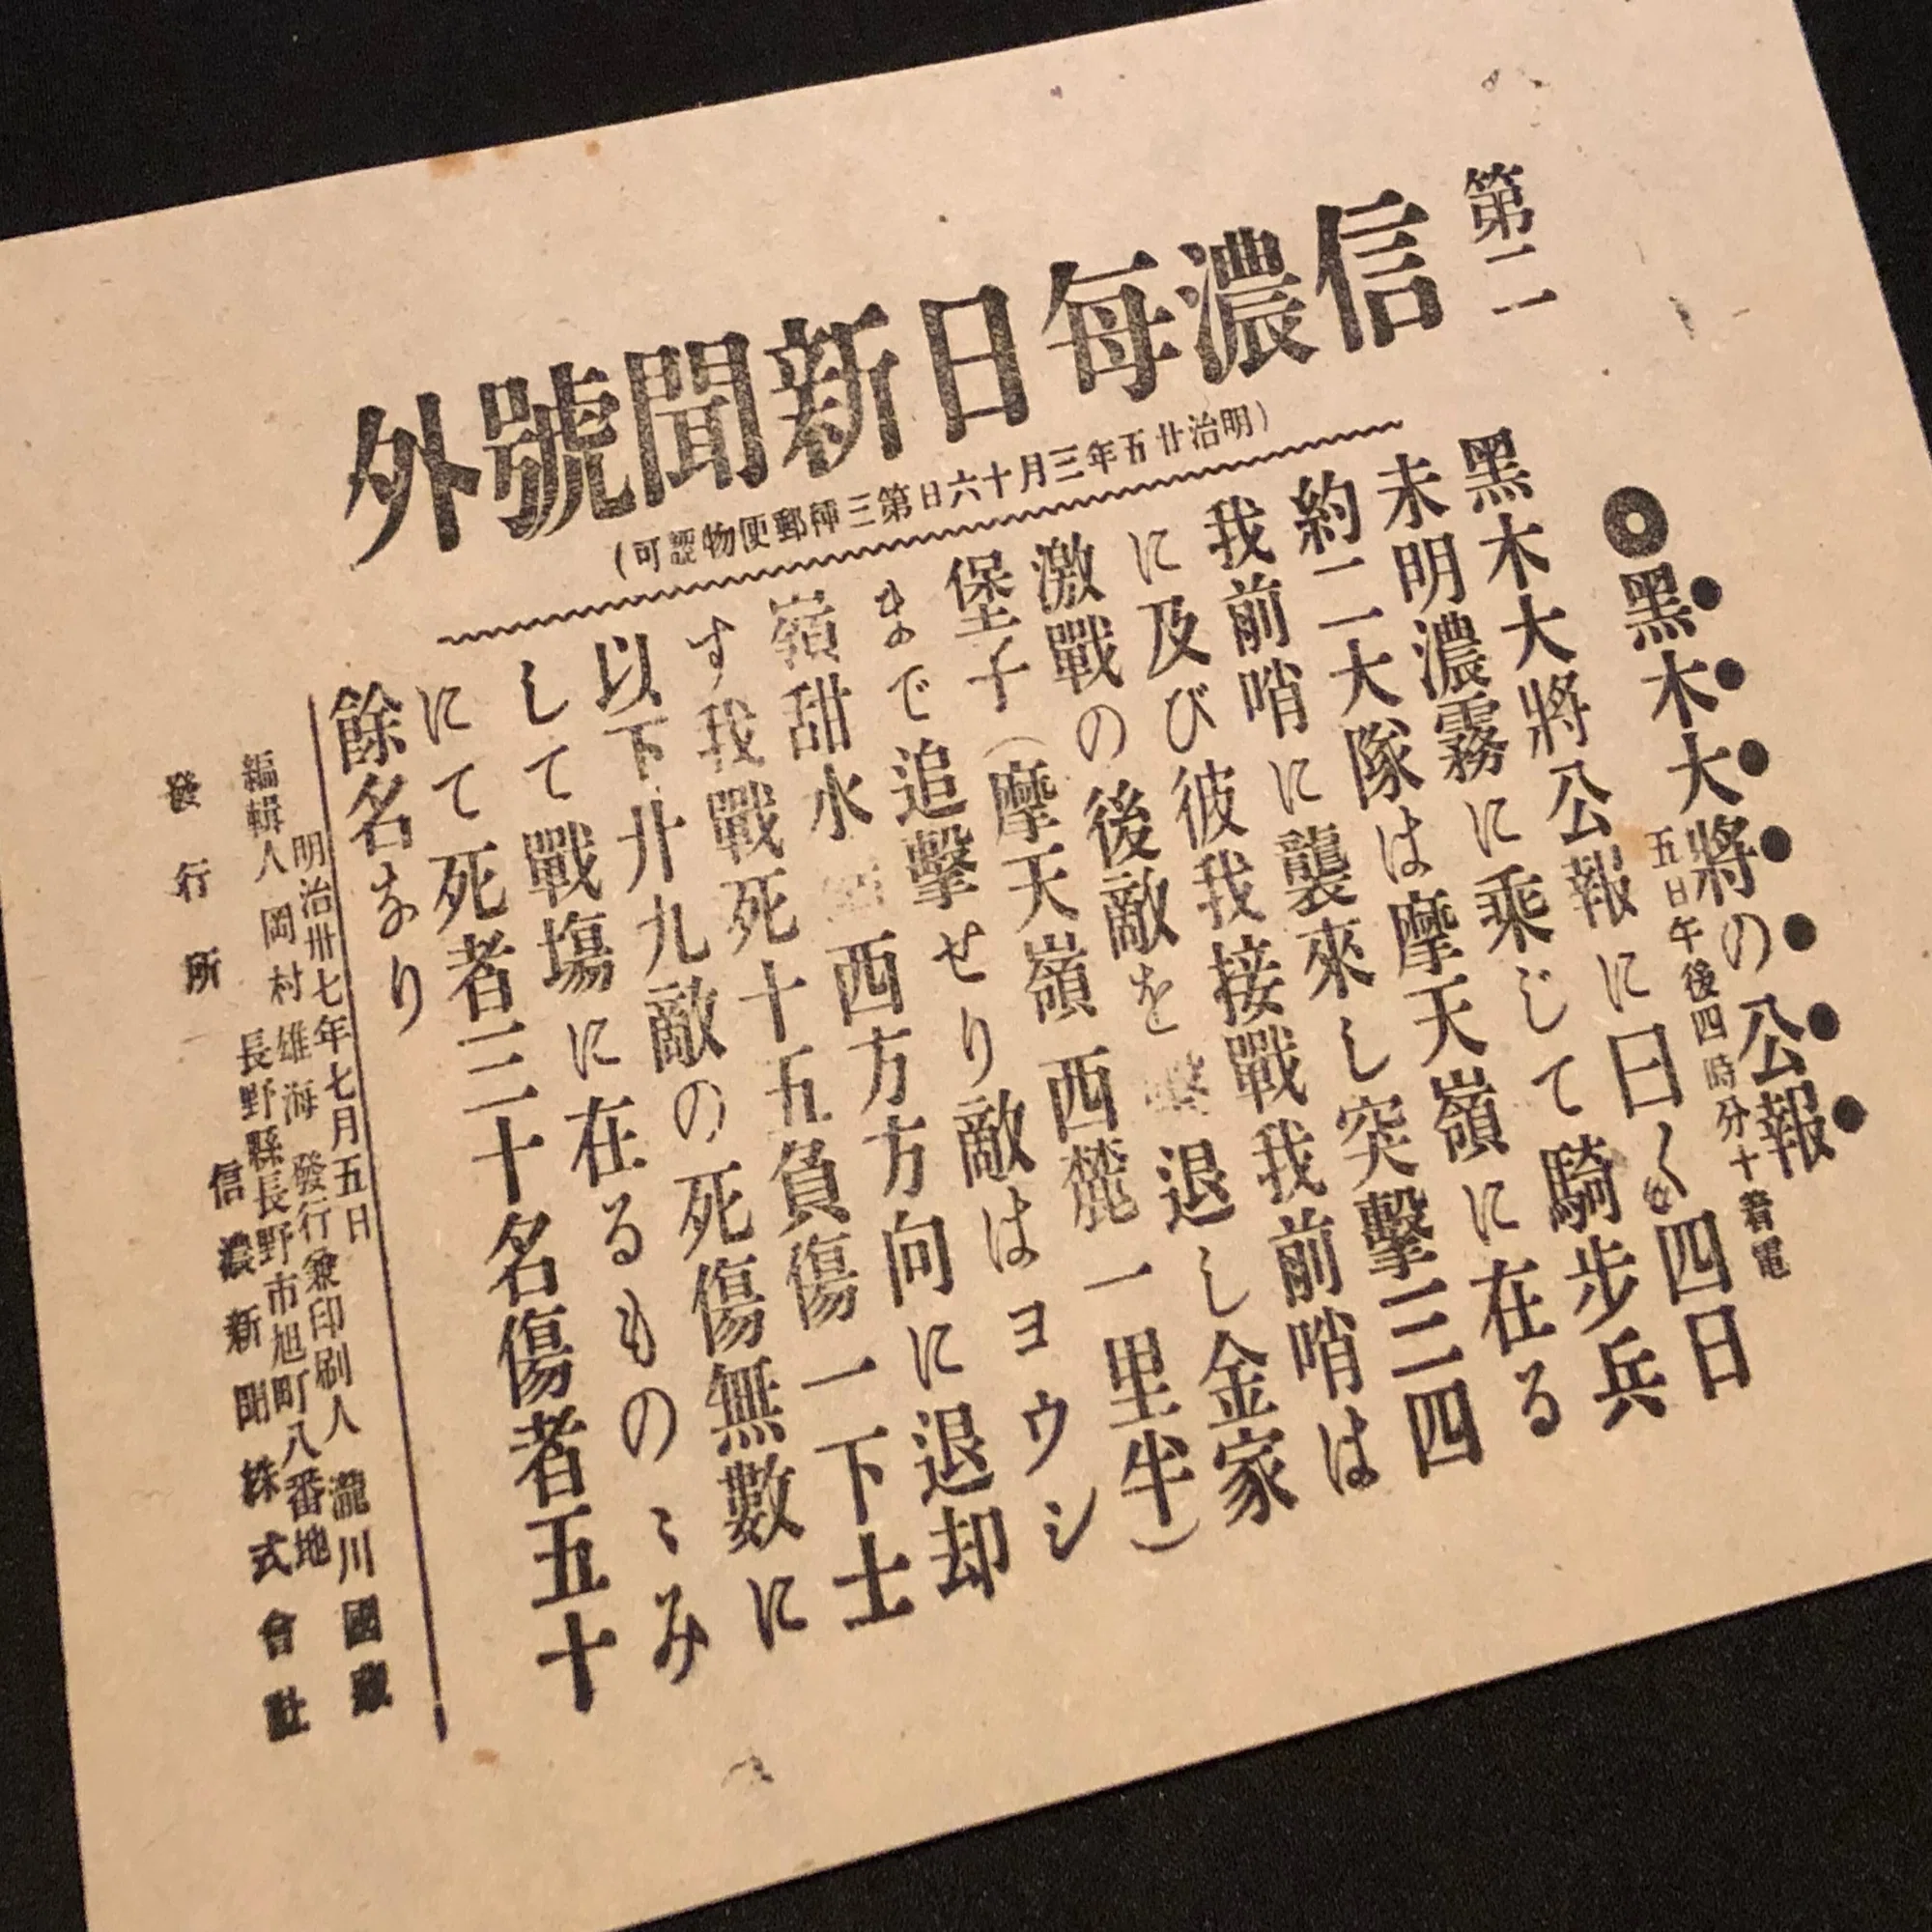 第二一
信濃毎日新聞號外
(明治廿五年三月十六日第三種郵便物認可)
◎黑木大將の公報
五日午後四時分十着電
黑木大將公報に曰く四日
未明濃霧に乘じて騎步兵
約二大隊は摩天嶺に在る
我前哨に襲來し突擊三四
に及び彼我接戰我前哨は
激戰の後敵を擊退し金家
堡子(摩天嶺西麓一里半)
まで追擊せり敵はヨウシ
嶺甜水西方方向に退却
す我戰死十五負傷一下士
以下廾九敵の死傷無數に
して戰塲に在るものゝみ
にて死者三十名傷者五十
餘名なり
明治卅七年七月五日
編輯人 岡村雄海 發行兼印刷人 瀧川國藏
長野縣長野市旭町八番地
發行所 信濃新聞株式會社